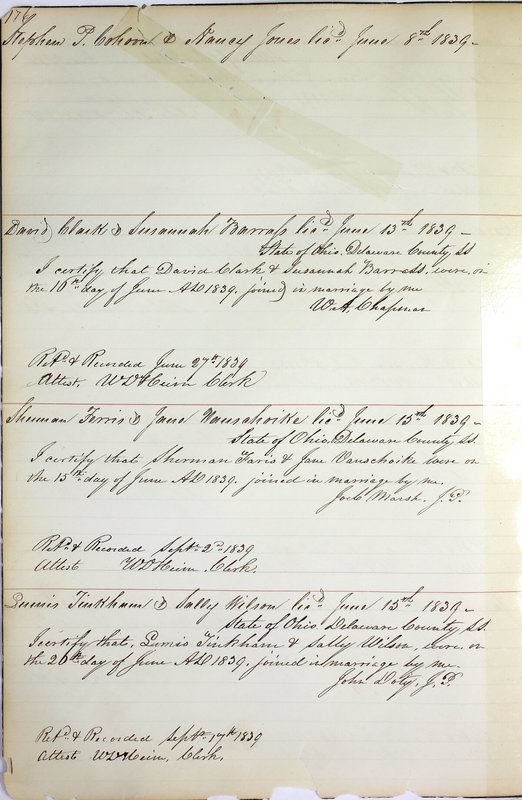 176
Stephen P. Cohoon & Nancy Jones lic.d June 8th 1839 -
David Clark & Susannah Barrass lic.d June 13th 1839 -
State of Ohio, Delaware County, SS
I certify that David Clark & Susannah Barrass, were, on
the 16th day of June AD 1839. joined in marriage by me
W. A. Chapman
Ret.d & Recorded June 27th 1839
Attest. Clerk
Sherman Ferris & Jane Vanschoike lic.d June 15th 1839 -
State of Ohio, Delaware County, SS.
I certify that Sherman Faris & Jane Vanschoike were on
the 15th day of June AD 1839. joined in marriage by me.
Marsh. J.P.
Ret.d & Recorded Sept. 2d 1839
Attest Clerk.
Lumis Tinkham & Sally Wilson lic.d June 15th 1839 -
State of Ohio, Delaware County, SS.
I certify that, Lumis Tinkham & Sally Wilson, were, on
the 20th day of June AD 1839. joined in marriage by me.
John Doty, J.P.
Ret.d & Recorded Sept. 17th 1839
Attest Clerk.